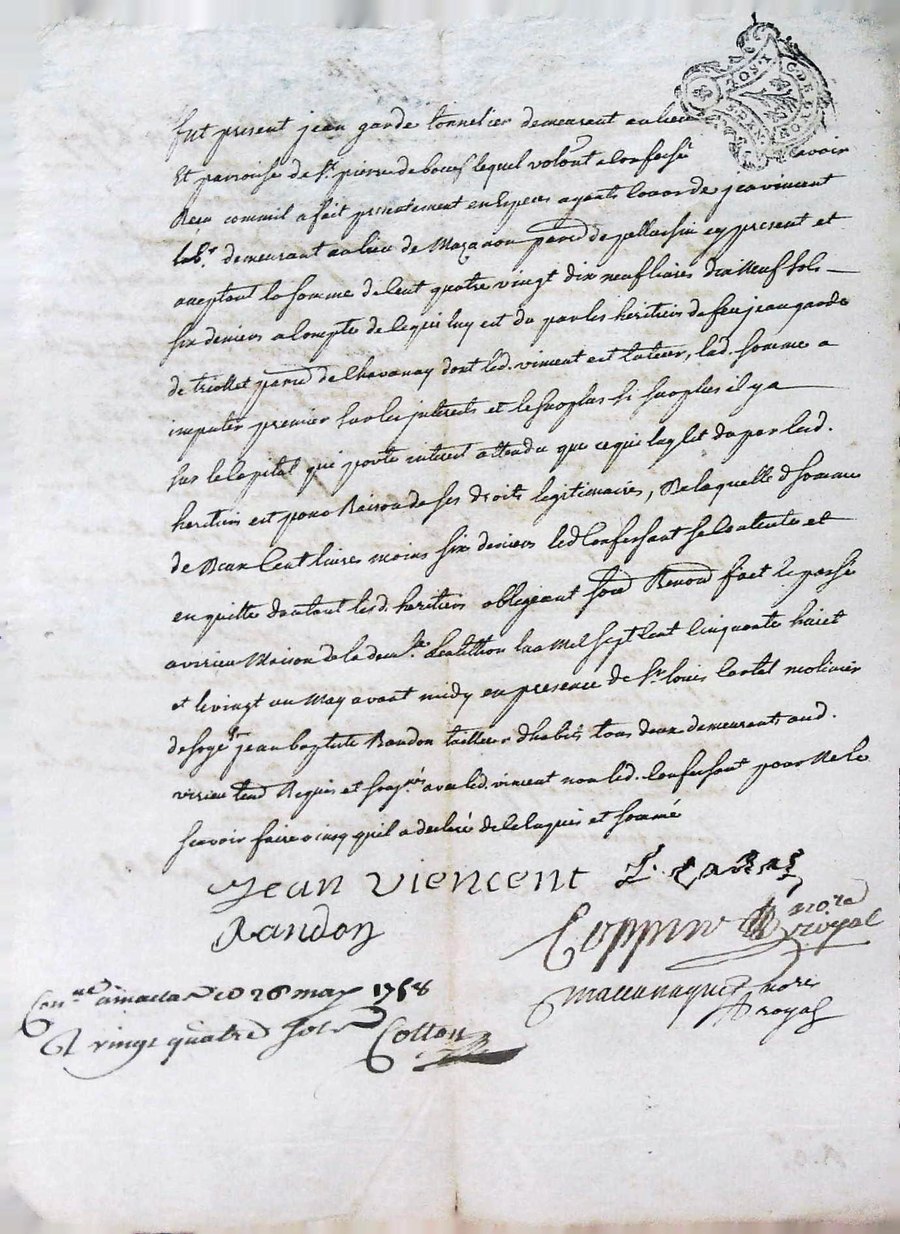 fut present jean garde tonnelier demeurant au lieu
Et parroisse de St. pierre de boeuf lequel volont. a Confessé avoir
Reçu comm'il a fait presentement en Especes ayants Cours de jean vincent
lab.r demeurant au lieu de Mazanon paroi de pellussin icy present et
aceptant la somme de Cent quatre vingt dix neuf livres dix Neuf sols
six deniers a Compte de ce qui luy est du par les heritiers de feu jean garde
de triollet paroi. de Chavanay dont led. vincent est tuteur, lad. somme a
imputer premier sur les interets et le surplus si surplus il y a
sur le Capital qui porte interet attendu que ce qui luy est du par lesd.
heritiers est pour Raison de ses droits legitimaires, De laquelle d. somme
de Deux Cent livres moins six deniers led Confessant se Contente et
en quitte d'autant lesd. heritiers obligeant soud Renond fait et passé
a virieu Maison de la dem.lle l'an Mil sept Cent Cinquante huict
et le vingt un May avant midy en presence de Sr. Louis
jean baptiste Randon tailleur d'habits tous deux demeurants aud.
virieu Requis et soug.nés avec led. vincent non led. Confessant pour Ne le
scavoir faire ainsy qu'il a declaré de Ce Enquis et sommé
Jean Viencent L.
Randon
Coppin no.re royal
nore royal
Con.lle a le 26 may 1758
R vingt quatre sols Cotton